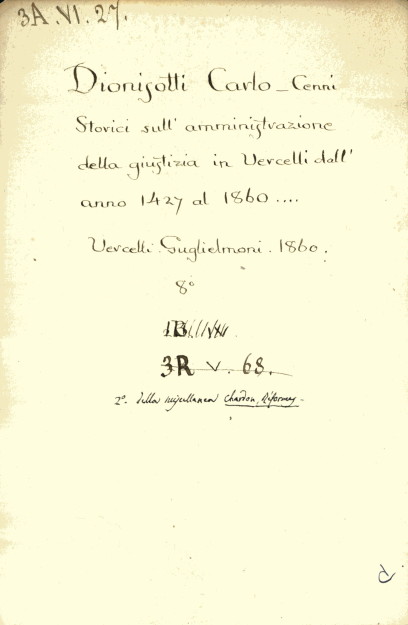 3A. VI. 27.
Dionisotti Carlo _ Cenni
Storici sull' amministrazione
della giustizia in Vercelli dall'
anno 1427 al 1860 ....
Vercelli. Guglielmoni. 1860.
8°
3R V. 68.
2°. della miscellanea Chardon,